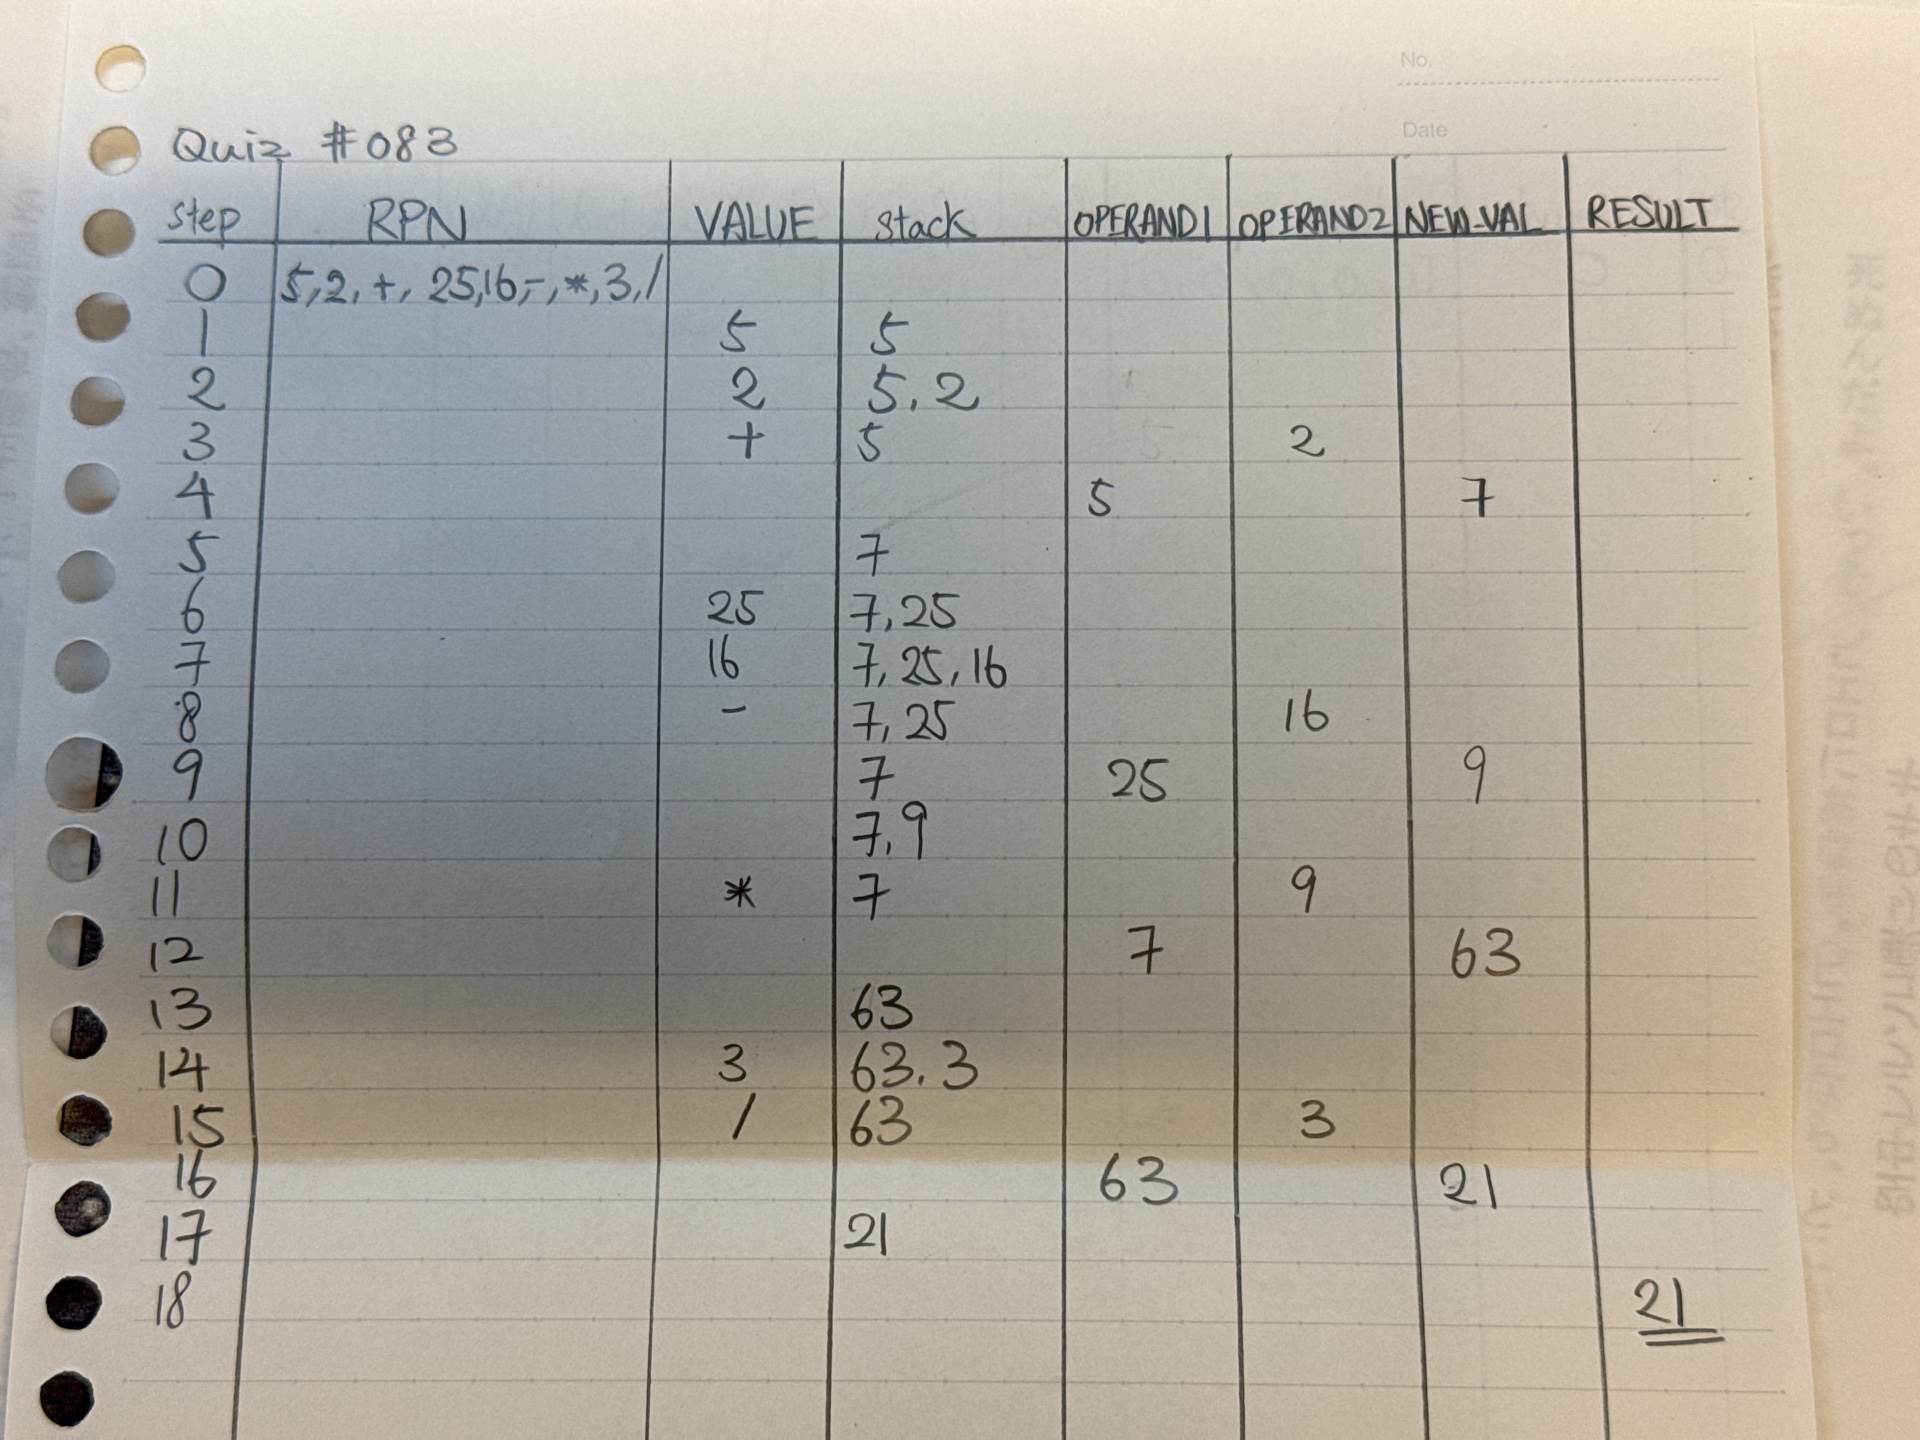 No.
Date
Quiz #083
step RPN VALUE stack OPERAND1 OPERAND2 NEW_VAL RESULT
0 5,2,+, 25,16,-,*,3,/
1 5 5
2 2 5,2
3 + 5 2
4 5 7
5 7
6 25 7,25
7 16 7,25,16
8 - 7,25 16
9 7 25 9
10 7,9
11 * 7 9
12 7 63
13 63
14 3 63,3
15 / 63 3
16 63 21
17 21
18 21